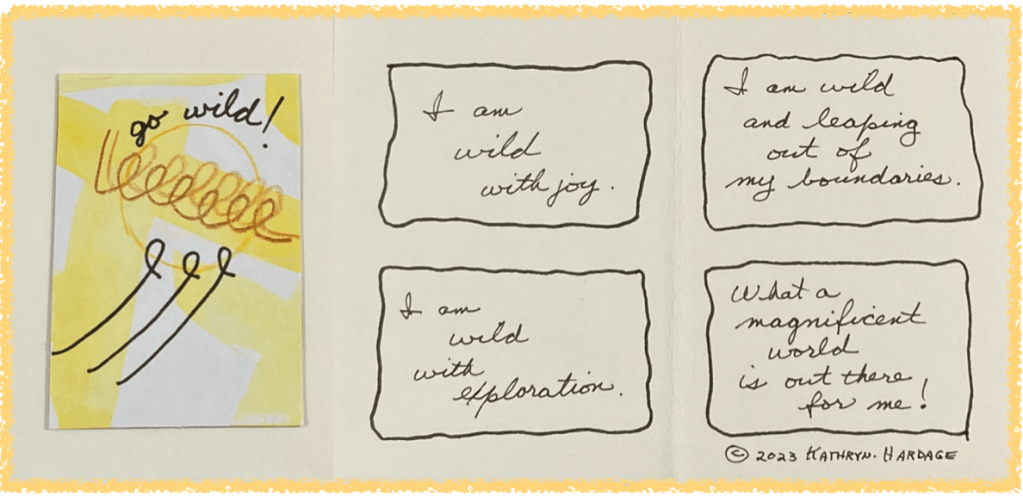 go wild!
I am
wild
with joy.
I am
wild
with
exploration.
I am wild
and leaping
out of
my boundaries.
What a
magnificent
world
is out there
for me!
© 2023 KATHRYN HARDAGE